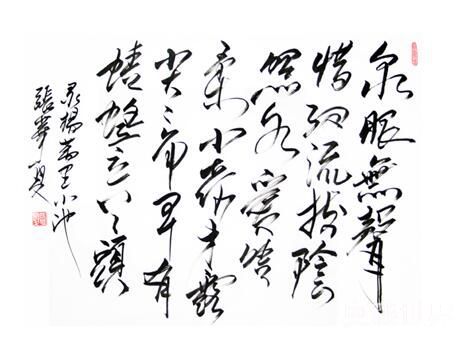 泉眼無聲
惜細流樹陰
照水愛晴
柔小荷才露
尖尖角早有
蜻蜓立上頭
录楊萬里小池
張